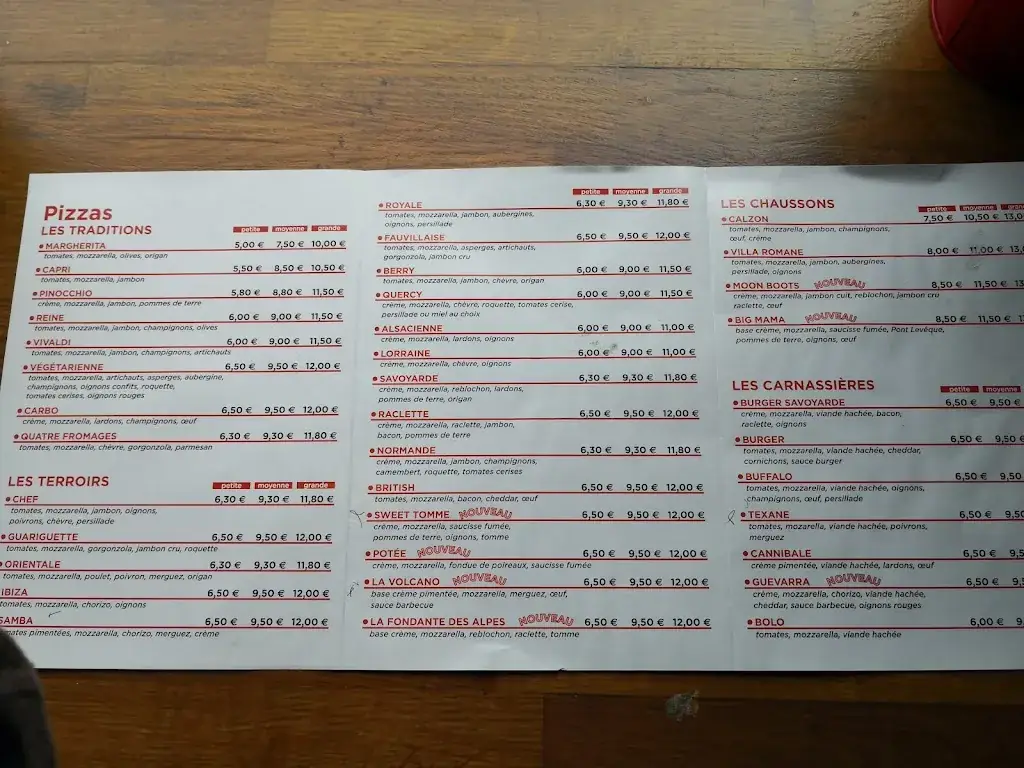 Pizzas
LES TRADITIONS
petite moyenne grande
MARGHERITA 5,00 € 7,50 € 10,00 €
tomates, mozzarella, olives, origan
CAPRI 5,50 € 8,50 € 10,50 €
tomates, mozzarella, jambon
PINOCCHIO 5,80 € 8,80 € 11,50 €
crème, mozzarella, jambon, pommes de terre
REINE 6,00 € 9,00 € 11,50 €
tomates, mozzarella, jambon, champignons, olives
VIVALDI 6,00 € 9,00 € 11,50 €
tomates, mozzarella, jambon, champignons, artichauts
VÉGÉTARIENNE 6,50 € 9,50 € 12,00 €
tomates, mozzarella, artichauts, asperges, aubergine,
champignons, oignons confits, roquette,
tomates cerises, oignons rouges
CARBO 6,50 € 9,50 € 12,00 €
crème, mozzarella, lardons, champignons, œuf
QUATRE FROMAGES 6,30 € 9,30 € 11,80 €
tomates, mozzarella, chèvre, gorgonzola, parmesan
LES TERROIRS
petite moyenne grande
CHEF 6,30 € 9,30 € 11,80 €
tomates, mozzarella, jambon, oignons,
poivrons, chèvre, persillade
GUARIGUETTE 6,50 € 9,50 € 12,00 €
tomates, mozzarella, gorgonzola, jambon cru, roquette
ORIENTALE 6,30 € 9,30 € 11,80 €
tomates, mozzarella, poulet, poivron, merguez, origan
IBIZA 6,50 € 9,50 € 12,00 €
tomates, mozzarella, chorizo, oignons
SAMBA 6,50 € 9,50 € 12,00 €
pimentées, mozzarella, chorizo, merguez, crème
petite moyenne grande
ROYALE 6,30 € 9,30 € 11,80 €
tomates, mozzarella, jambon, aubergines,
oignons, persillade
FAUVILLAISE 6,50 € 9,50 € 12,00 €
tomates, mozzarella, asperges, artichauts,
gorgonzola, jambon cru
BERRY 6,00 € 9,00 € 11,50 €
tomates, mozzarella, jambon, chèvre, origan
QUERCY 6,00 € 9,00 € 11,50 €
crème, mozzarella, chèvre, roquette, tomates cerise,
persillade ou miel au choix
ALSACIENNE 6,00 € 9,00 € 11,00 €
crème, mozzarella, lardons, oignons
LORRAINE 6,00 € 9,00 € 11,00 €
crème, mozzarella, chèvre, oignons
SAVOYARDE 6,30 € 9,30 € 11,80 €
crème, mozzarella, reblochon, lardons,
pommes de terre, origan
RACLETTE 6,50 € 9,50 € 12,00 €
crème, mozzarella, raclette, jambon,
bacon, pommes de terre
NORMANDE 6,30 € 9,30 € 11,80 €
crème, mozzarella, jambon, champignons,
camembert, roquette, tomates cerises
BRITISH 6,50 € 9,50 € 12,00 €
tomates, mozzarella, bacon, cheddar, œuf
SWEET TOMME NOUVEAU 6,50 € 9,50 € 12,00 €
crème, mozzarella, saucisse fumée,
pommes de terre, oignons, tomme
POTÉE NOUVEAU 6,50 € 9,50 € 12,00 €
crème, mozzarella, fondue de poireaux, saucisse fumée
LA VOLCANO NOUVEAU 6,50 € 9,50 € 12,00 €
base crème pimentée, mozzarella, merguez, œuf,
sauce barbecue
LA FONDANTE DES ALPES NOUVEAU 6,50 € 9,50 € 12,00 €
base crème, mozzarella, reblochon, raclette, tomme
LES CHAUSSONS
petite moyenne
CALZON 7,50 € 10,50 € 13,0
tomates, mozzarella, jambon, champignons,
œuf, crème
VILLA ROMANE 8,00 € 11,00 €
tomates, mozzarella, jambon, aubergines,
persillade, oignons
MOON BOOTS NOUVEAU 8,50 € 11,50 €
crème, mozzarella, jambon cuit, reblochon, jambon cru
raclette, œuf
BIG MAMA NOUVEAU 8,50 € 11,50 €
base crème, mozzarella, saucisse fumée, Pont Levêque,
pommes de terre, oignons, œuf
LES CARNASSIÈRES
petite moyenne
BURGER SAVOYARDE 6,50 € 9,50 €
crème, mozzarella, viande hachée, bacon,
raclette, oignons
BURGER 6,50 € 9,50
tomates, mozzarella, viande hachée, cheddar,
cornichons, sauce burger
BUFFALO 6,50 € 9,50
tomates, mozzarella, viande hachée, oignons,
champignons, œuf, persillade
TEXANE 6,50 € 9,50
tomates, mozzarella, viande hachée, poivrons,
merguez
CANNIBALE 6,50 € 9,5
crème pimentée, viande hachée, lardons, œuf
GUEVARRA NOUVEAU 6,50 € 9,5
crème, mozzarella, chorizo, viande hachée,
cheddar, sauce barbecue, oignons rouges
BOLO 6,00 € 9,
tomates, mozzarella, viande hachée